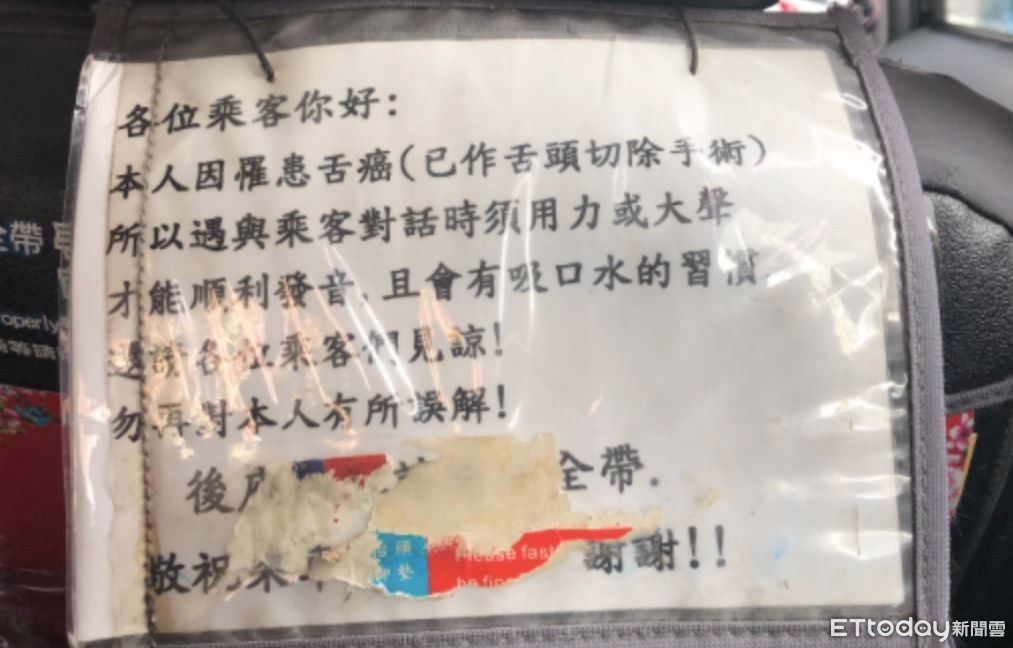 各位乘客你好:
本人因罹患舌癌(已作舌頭切除手術)
所以遇與乘客對話時須用力或大聲
才能順利發音,且會有吸口水的習慣
還請各位乘客們見諒!
勿再對本人有所誤解!
後 全帶.
敬祝乘 謝謝!!
抬頭
Please fast
be fine
全帶
roperly
ETtoday新聞雲